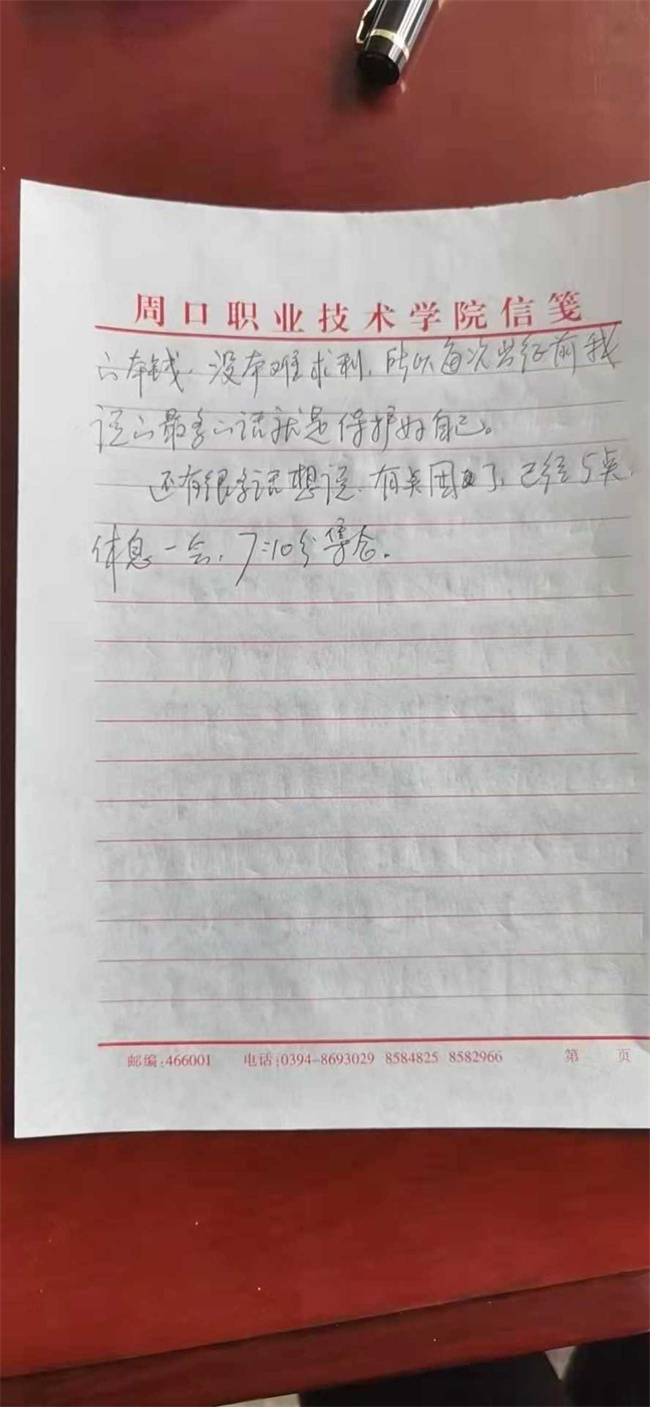 周口职业技术学院信笺
的本钱，没本难求利，所以每次出征前我
说的最多的话就是保护好自己。
还有很多话想说，有点困了，已经5点，
休息一会，7:10分集合。
邮编:466001 电话:0394-8693029 8584825 8582966 第 页